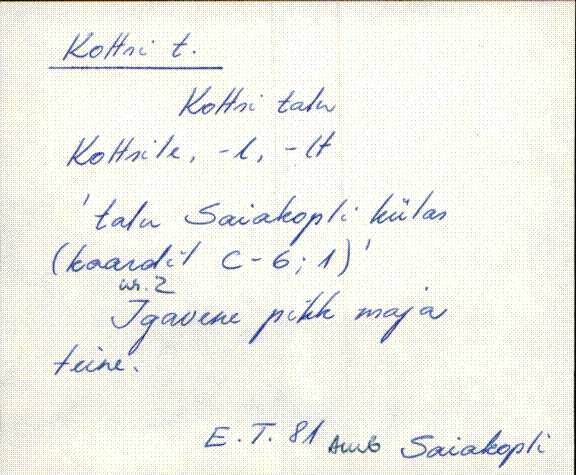 Kottsi t.
Kottsi talu
Kottsile, -l, -lt
'talu Saiakopli külas
(kaardil C-6; 1)'
nr. 2
Igavene pikk maja
teine.
E. T. 81 Amb Saiakopli